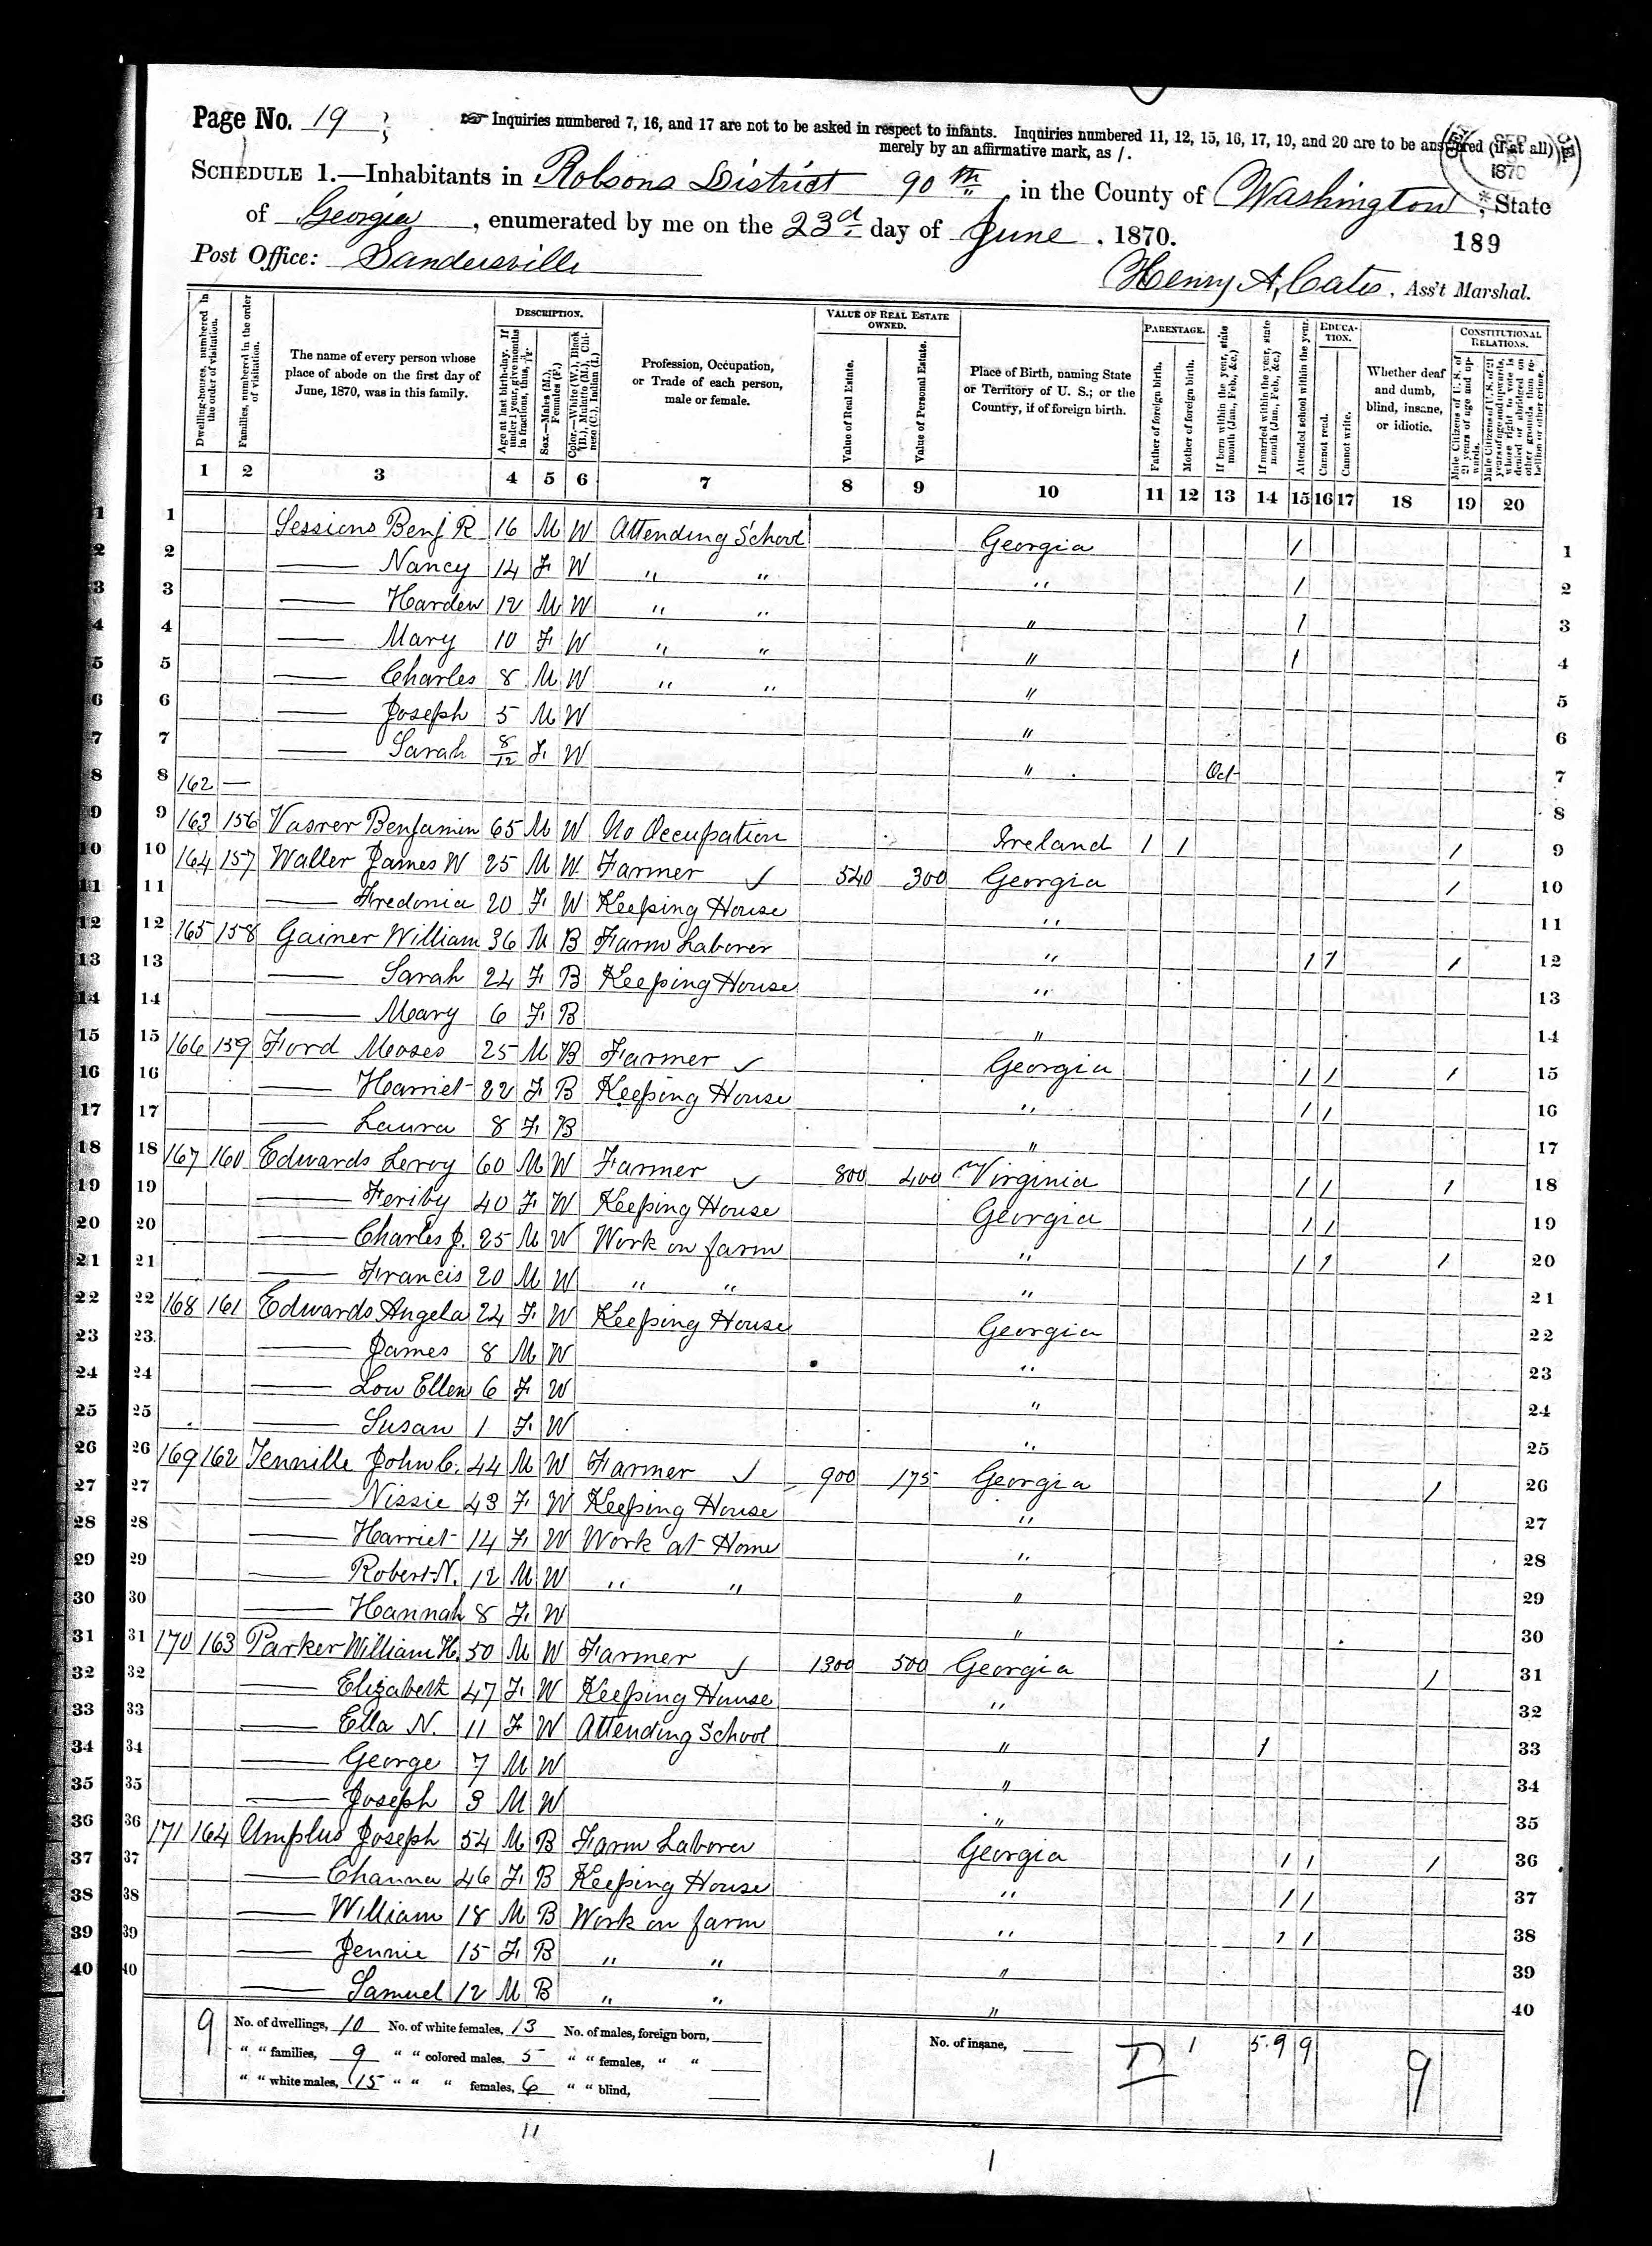 Page No. 19
☞ Inquiries numbered 7, 16, and 17 are not to be asked in respect to infants. Inquiries numbered 11, 12, 15, 16, 17, 19, and 20 are to be answered (if at all)
merely by an affirmative mark, as /.
SCHEDULE 1.—Inhabitants in Robsons District 90th, in the County of Washington, State
of Georgia, enumerated by me on the 23d day of June, 1870.
189
Post Office: Sandersville
Henry A. Cates, Ass't Marshal.
Dwelling-houses, numbered in the order of visitation.
Families, numbered in the order of visitation.
The name of every person whose place of abode on the first day of June, 1870, was in this family.
DESCRIPTION.
Age at last birth-day. If under 1 year, give months in fractions, thus,
Sex.—Males (M.), Females (F.)
Color.—White (W.), Black (B.), Mulatto (M.), Chinese (C.), Indian (I.)
Profession, Occupation, or Trade of each person, male or female.
VALUE OF REAL ESTATE OWNED.
Value of Real Estate.
Value of Personal Estate.
Place of Birth, naming State or Territory of U. S.; or the Country, if of foreign birth.
PARENTAGE.
Father of foreign birth.
Mother of foreign birth.
If born within the year, state month (Jan., Feb., &c.)
If married within the year, state month (Jan., Feb., &c.)
Attended school within the year.
EDUCATION.
Cannot read.
Cannot write.
Whether deaf and dumb, blind, insane, or idiotic.
CONSTITUTIONAL RELATIONS.
Male Citizens of U. S. of 21 years of age and upwards.
Male Citizens of U. S. of 21 years of age and upwards, whose right to vote is denied or abridged on other grounds than rebellion or other crime.
1 2 3 4 5 6 7 8 9 10 11 12 13 14 15 16 17 18 19 20
1 Sessions Benj R 16 M W Attending School Georgia / 1
2 — Nancy 14 F W " " " / 2
3 — Harden 12 M W " " " / 3
4 — Mary 10 F W " " " / 4
5 — Charles 8 M W " " " 5
6 — Joseph 5 M W " 6
7 — Sarah 8/12 F W " Oct 7
8 162 — 8
9 163 156 Benjamin 65 M W No Occupation Ireland 1 1 / 9
10 164 157 Waller James W 25 M W Farmer ✓ 540 300 Georgia / 10
11 — Fredonia 20 F W Keeping House " 11
12 165 158 Gainer William 36 M B Farm Laborer " / / / 12
13 — Sarah 24 F B Keeping House " 13
14 — Mary 6 F B " 14
15 166 159 Ford Moses 25 M B Farmer ✓ Georgia / / / 15
16 — Harriet 22 F B Keeping House " / / 16
17 — Laura 8 F B " 17
18 167 160 Edwards Leroy 60 M W Farmer ✓ 800 400 Virginia / / / 18
19 — Feriby 40 F W Keeping House Georgia / / 19
20 — Charles J. 25 M W Work on farm " / / / 20
21 — Francis 20 M W " " " 21
22 168 161 Edwards Angela 24 F W Keeping House Georgia 22
23 — James 8 M W " 23
24 — Lou Ellen 6 F W " 24
25 — Susan 1 F W " 25
26 169 162 Tennille John C. 44 M W Farmer ✓ 900 175 Georgia / 26
27 — Nissie 43 F W Keeping House " 27
28 — Harriet 14 F W Work at Home " 28
29 — Robert N. 12 M W " " " 29
30 — Hannah 8 F W " 30
31 170 163 Parker William H. 50 M W Farmer ✓ 1300 500 Georgia / 31
32 — Elizabeth 47 F W Keeping House " 32
33 — Ella N. 11 F W Attending School " / 33
34 — George 7 M W " 34
35 — Joseph 3 M W " 35
36 171 164 Joseph 54 M B Farm Laborer Georgia / / / 36
37 — Channa 46 F B Keeping House " / / 37
38 — William 18 M B Work on farm " / / 38
39 — Jennie 15 F B " " " 39
40 — Samuel 12 M B " " " 40
9 No. of dwellings, 10 No. of white females, 13 No. of males, foreign born, No. of insane, 1 5 9 9 9
" " families, 9 " " colored males, 5 " " females, " "
" " white males, 15 " " " females, 6 " " blind,